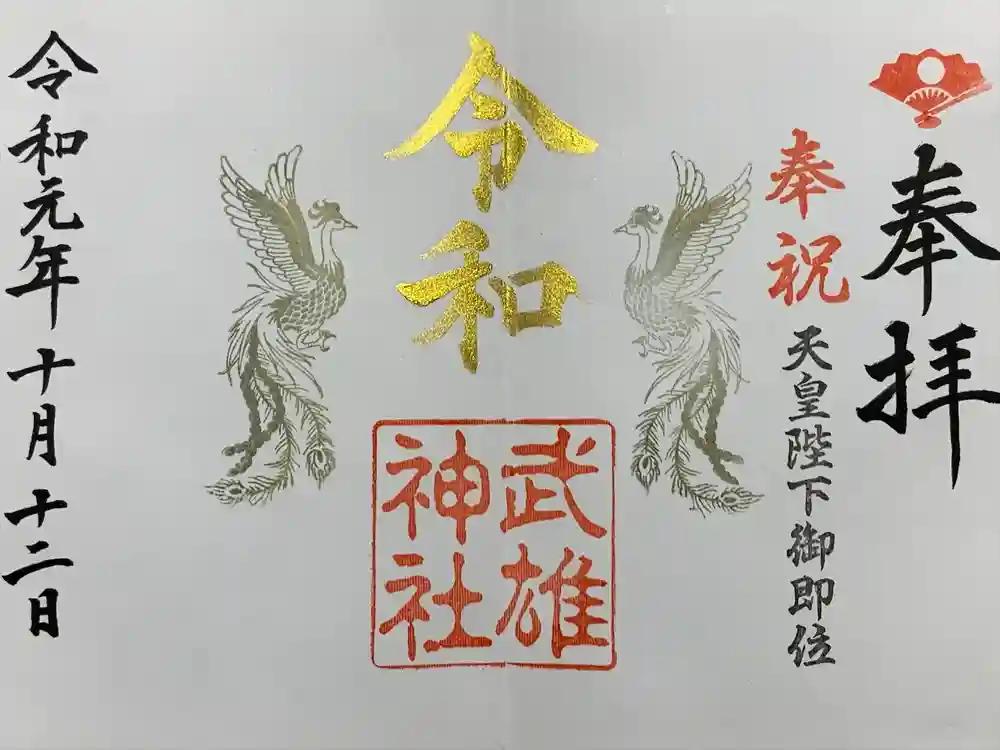 奉拝
奉祝
天皇陛下御即位
令和
武雄
神社
令和元年 十月 十二日